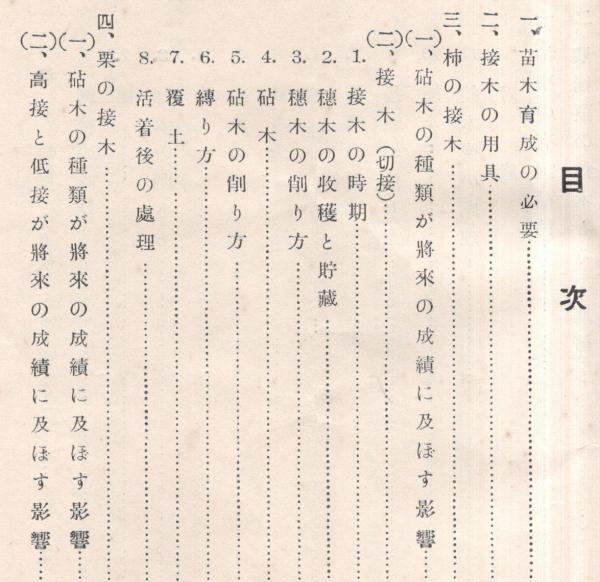 目次
一、苗木育成の必要
二、接木の用具
三、柿の接木
(一)、砧木の種類が將來の成績に及ぼす影響
(二)、接木(切接)
1. 接木の時期
2. 穗木の收穫と貯藏
3. 穗木の削り方
4. 砧木
5. 砧木の削り方
6. 縛り方
7. 覆土
8. 活着後の處理
四、栗の接木
(一)、砧木の種類が將來の成績に及ぼす影響
(二)、高接と低接が將來の成績に及ぼす影響